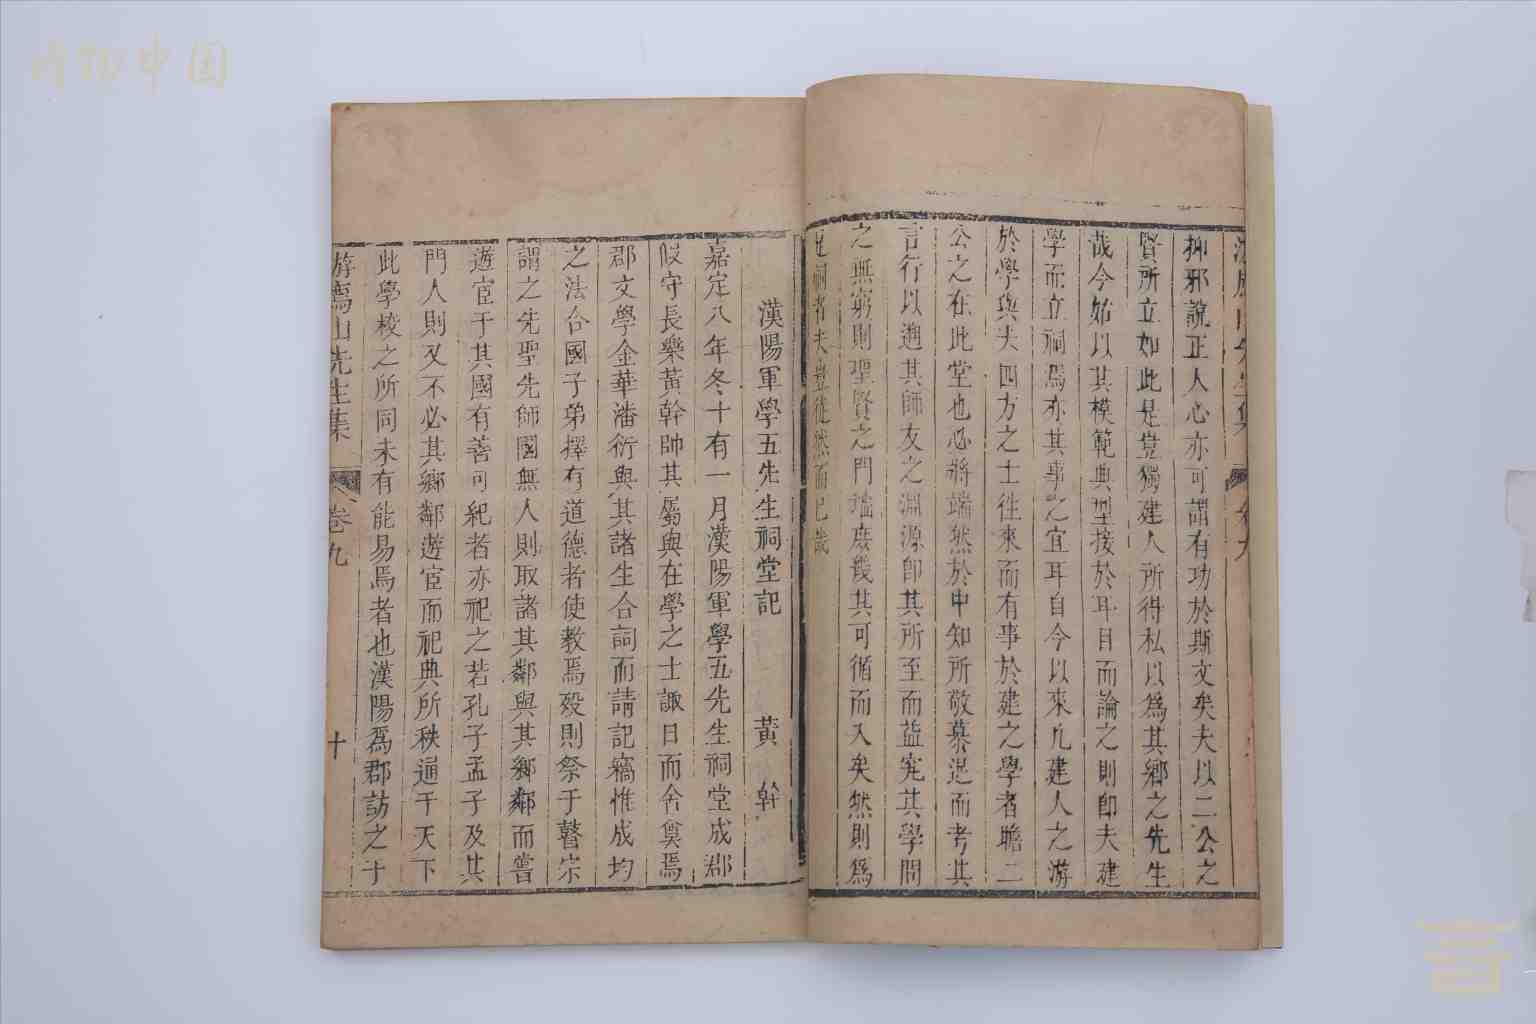 抑邪說正人心亦可謂有功於斯文矣夫以二公之
賢所立如此是豈獨建人所得私以為其鄉之先生
哉今始以其模範典型接於耳目而論之則即夫建
學而立祠焉亦其事之宜耳自今以來凡建人之游
於學與夫四方之士往來而有事於建之學者瞻二
公之在此堂也必將端然於中知所敬慕退而考其
言行以遡其師友之淵源即其所至而益究其學問
之無窮則聖賢之門墻庶幾其可循而入矣然則為
是祠者夫豈徒然而已哉
漢陽軍學五先生祠堂記 黃幹
嘉定八年冬十有一月漢陽軍學五先生祠堂成郡
假守長樂黃幹帥其屬與在學之士諏日而舍奠焉
郡文學金華潘衍與其諸生合詞而請記竊惟成均
之法合國子弟擇有道德者使教焉歿則祭于瞽宗
謂之先聖先師國無人則取諸其鄰與其鄉鄰而嘗
遊宦于其國有善可紀者亦祀之若孔子孟子及其
門人則又不必其鄉鄰遊宦而祀典所秩遍于天下
此學校之所同未有能易焉者也漢陽為郡訪之于
游廌山先生集 卷九 十